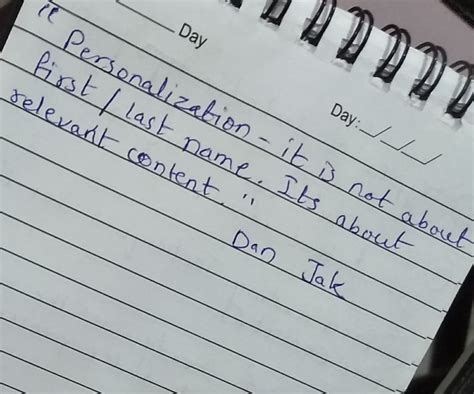 Day
Day:
" Personalization - it is not about
first / last name. Its about
relevant content."
Dan Jak